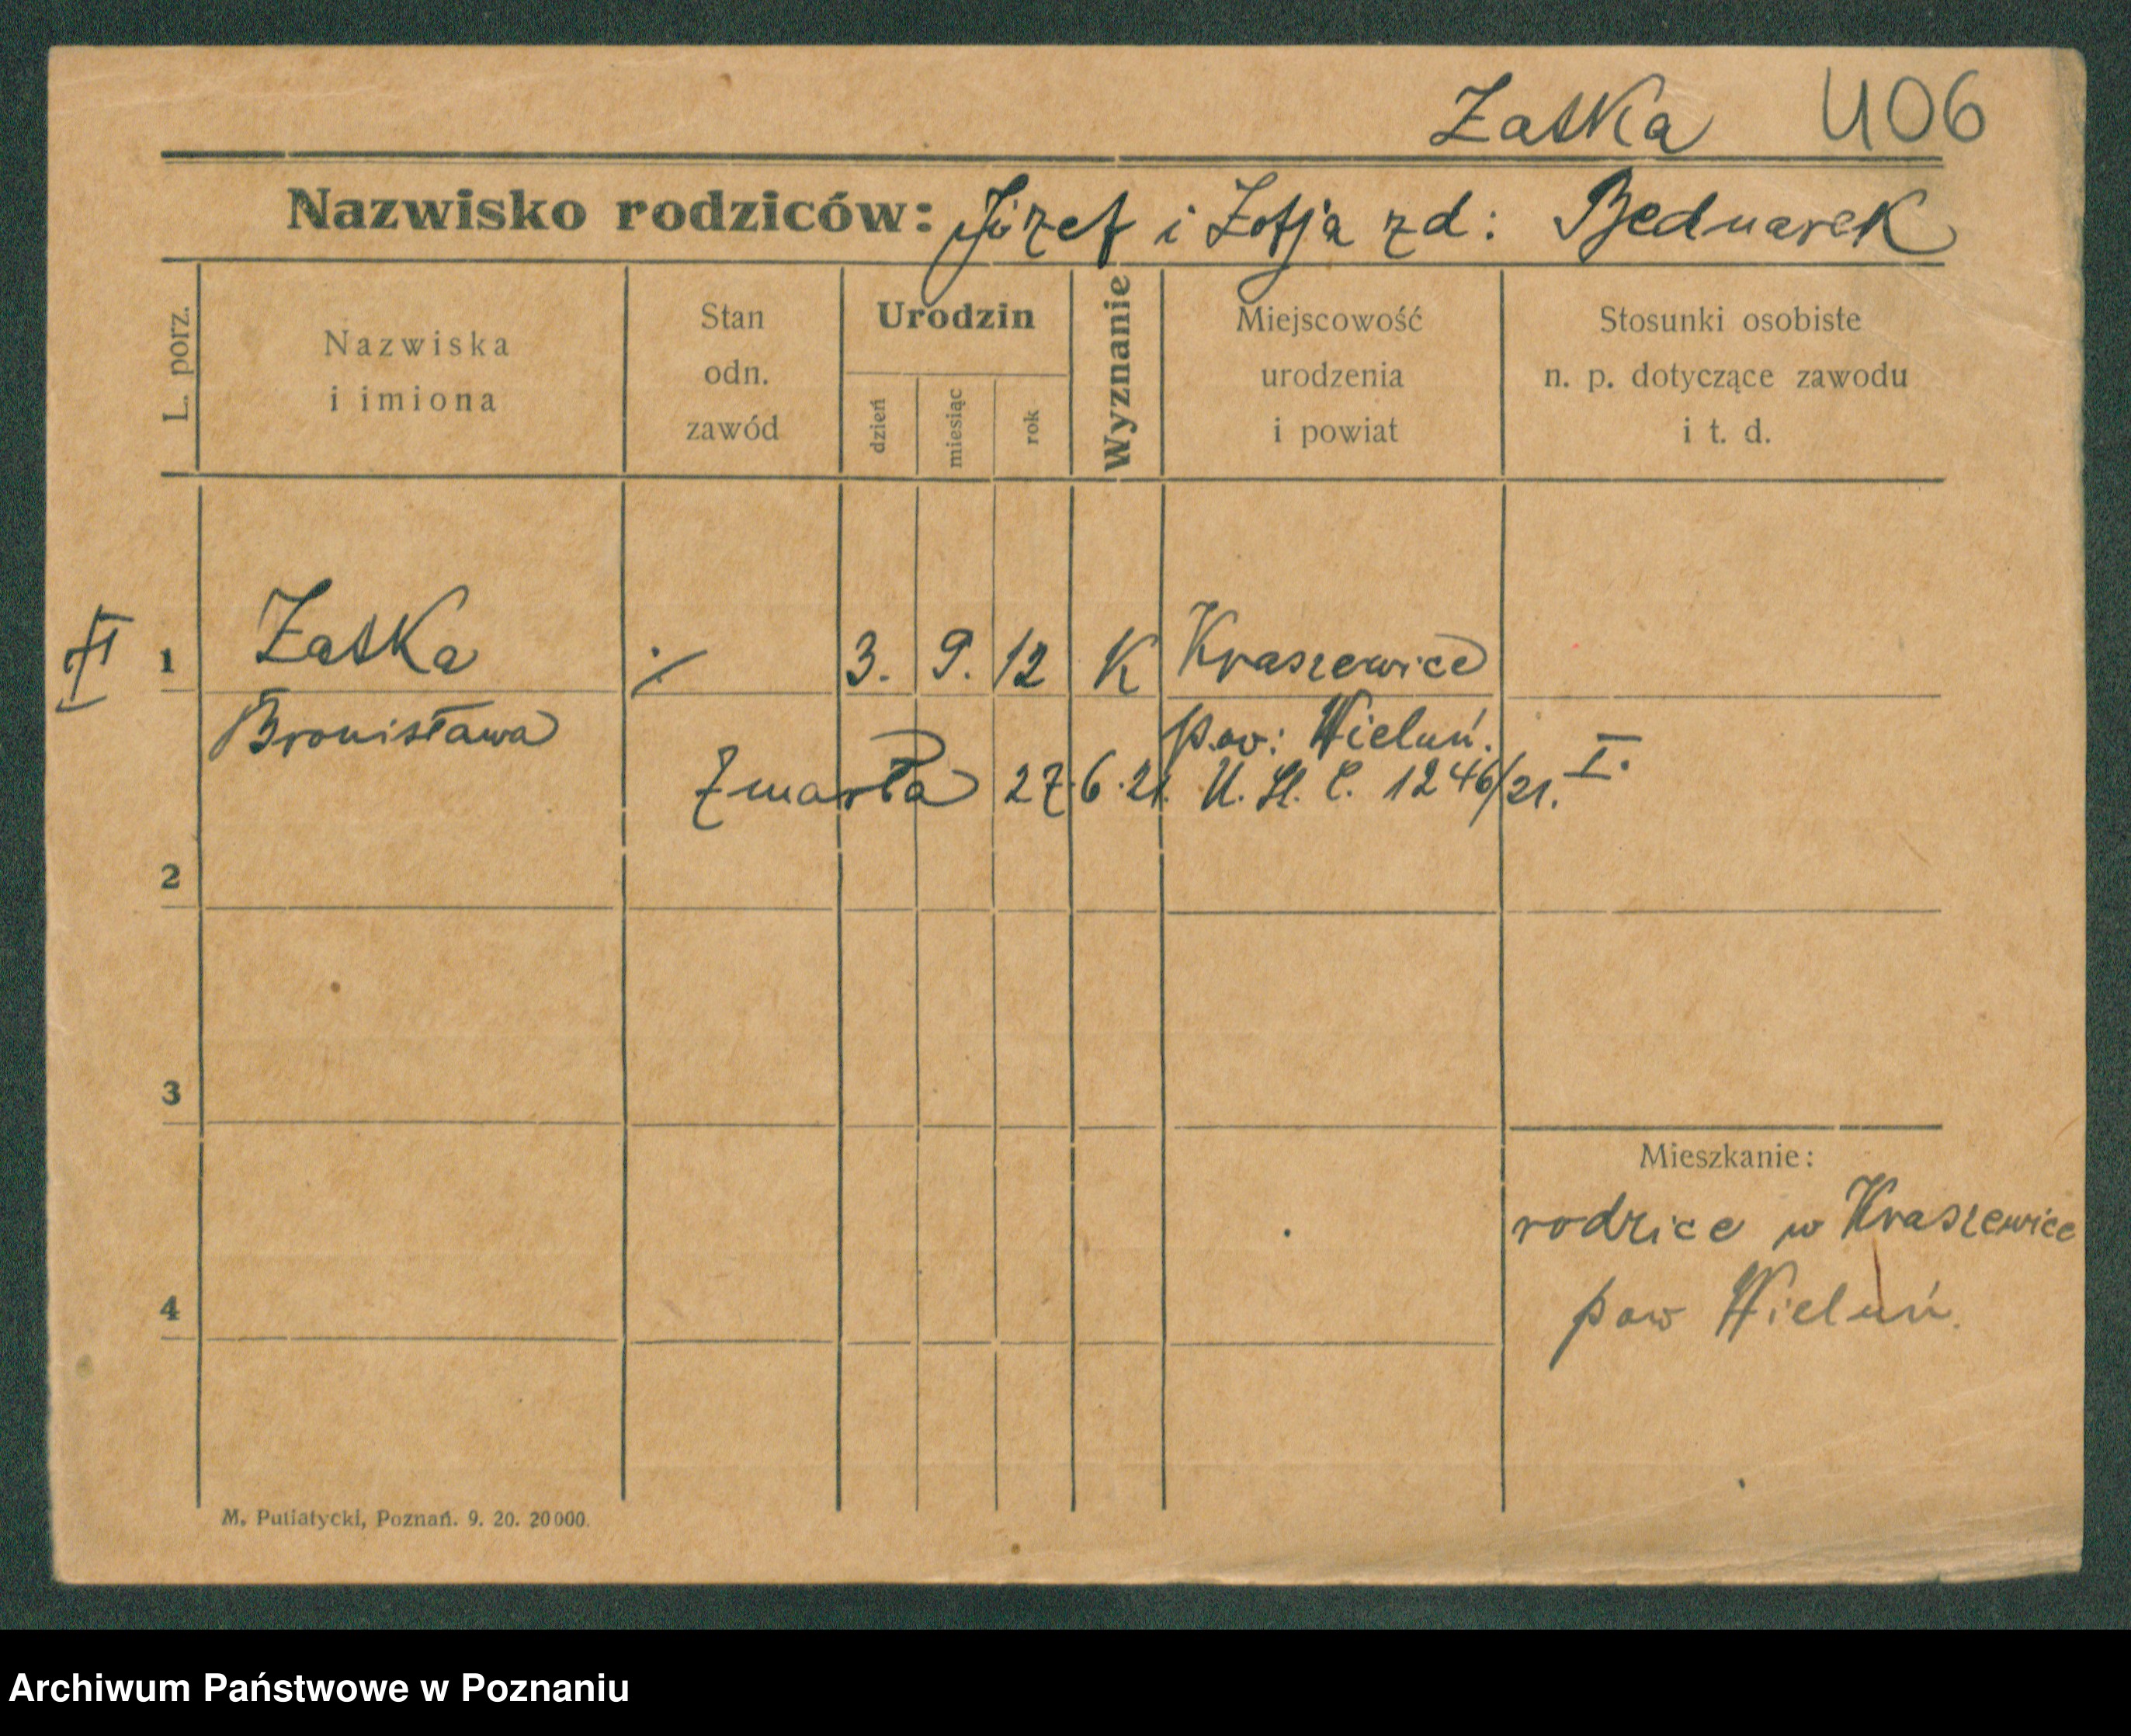 Załka 406
Nazwisko rodziców: Józef i Zofja zd: Bednarek
L. porz.
Nazwiska
i imiona
Stan
odn.
zawód
Urodzin
dzień
miesiąc
rok
Wyznanie
Miejscowość
urodzenia
i powiat
Stosunki osobiste
n. p. dotyczące zawodu
i t. d.
1 ./. 3. 9. 12 K Kraszewice
Bronisława pow: Wieluń.
Zmarła 27.6.21. U. St. C. 1246/21. I.
2
3
Mieszkanie:
rodzice w Kraszewice
4 pow Wieluń.
M. Putiatycki, Poznań. 9. 20. 20000.
Archiwum Państwowe w Poznaniu